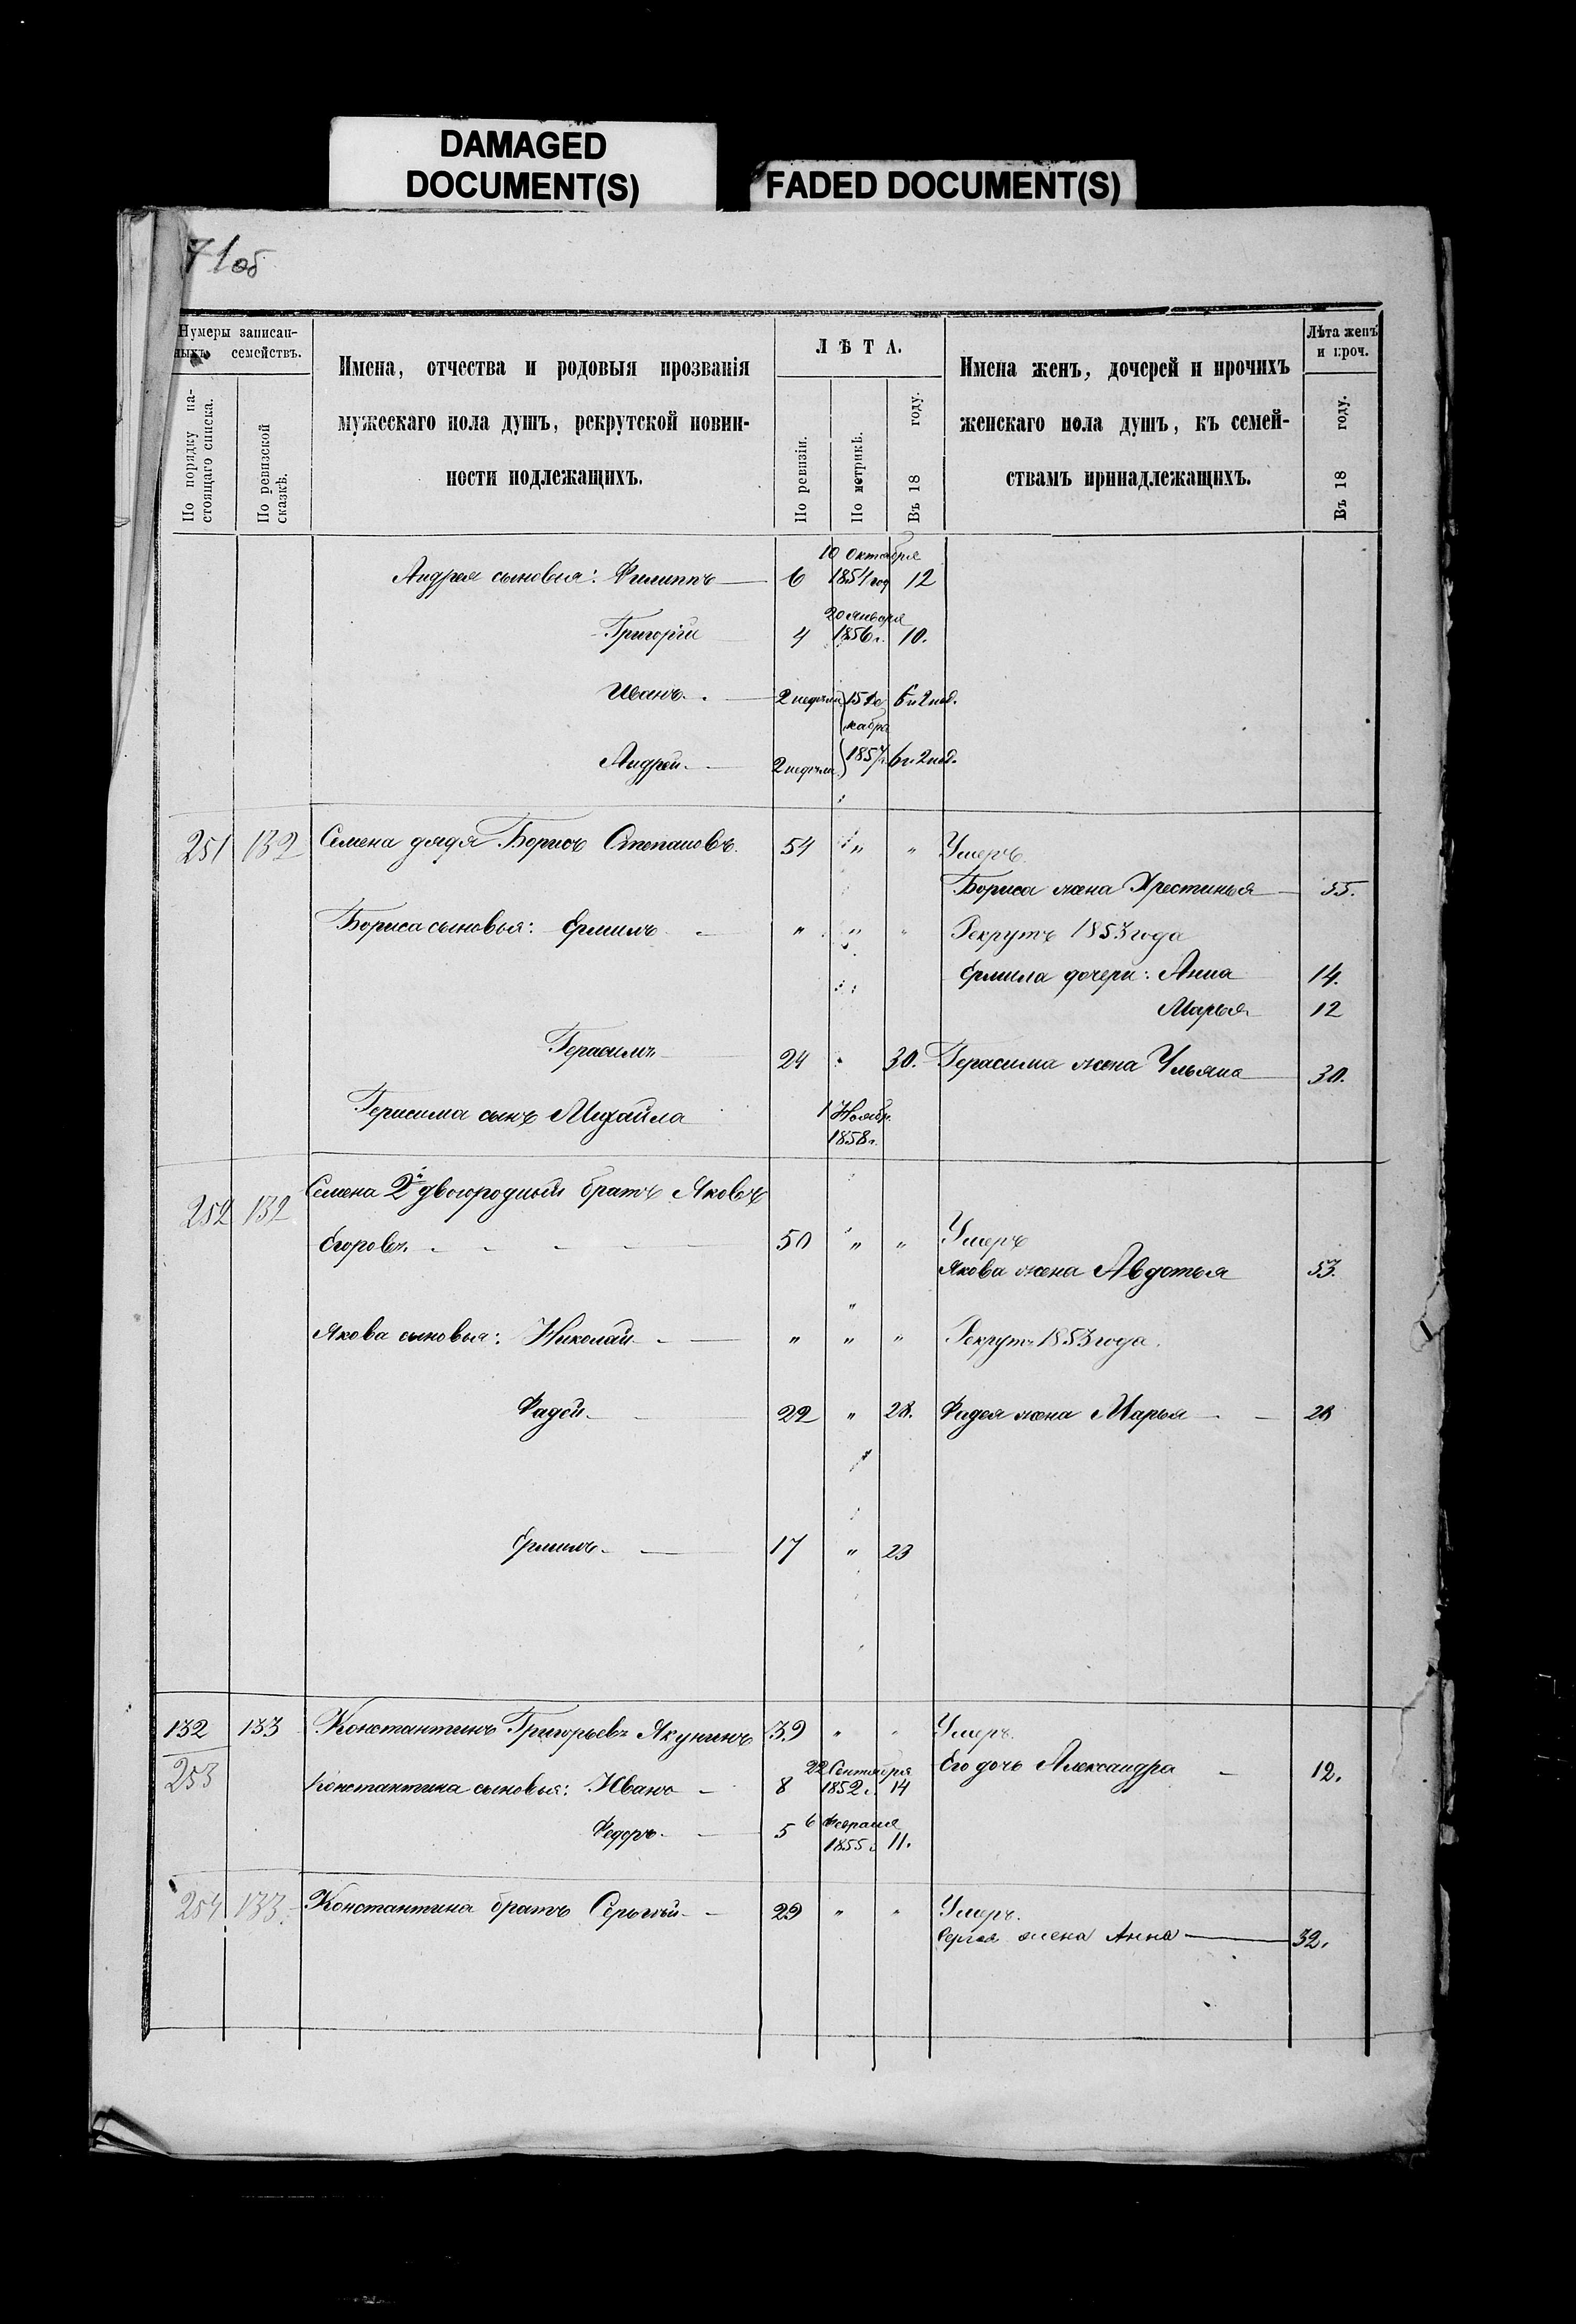 DAMAGED
DOCUMENT(S)
FADED DOCUMENT(S)
71об
Нумеры записан-
ныхъ семействъ.
По порядку на-
стоящаго списка.
По ревизской
сказкѣ.
Имена, отчества и родовыя прозванія
мужескаго пола душъ, рекрутской повин-
ности подлежащихъ.
ЛѢТА.
По ревизіи.
По метрикѣ.
Въ 18 году.
Имена женъ, дочерей и прочихъ
женскаго пола душъ, къ семей-
ствамъ принадлежащихъ.
Лѣта женъ
и проч.
Въ 18 году.
10 Октября
Андрея сыновья: Филиппъ 6 1854 год 12
20 января
Григорій 4 1856 г. 10.
Иванъ. 2 недѣли 15 де 6 и 2 нед.
кабря
Андрей 2 недѣли 1857 г. 6 и 2 нед.
251 132 Семена дядя Борисъ Степановъ. 54 " " Умеръ.
Бориса жена Хрестинья 55.
Бориса сыновья: Ермилъ " " " Рекрутъ 1853 года
Ермила дочери: Анна 14.
Марья 12
Герасимъ 24 " 30. Герасима жена Ульяна 30.
Герасима сынъ Михайла 1 Ноябр.
1858 г.
252 132 Семена 2й двоюродный братъ Яковъ
Егоровъ. 50 " " Умеръ
Якова жена Авдотья 53.
Якова сыновья: Николай " " " Рекрутъ 1853 года.
Фадей 22 " 28. Фадея жена Марья 28
Ермилъ 17 " 23
132 133 Константинъ Григорьевъ Якунинъ 39 " " Умеръ.
253
22 Сентября Его дочь Александра 12.
Константина сыновья: Иванъ 8 1852 г. 14
6 Февраля
Федоръ 5 1855 г. 11.
254 133. Константина братъ Сергѣй 29 " " Умеръ.
Сергея жена Анна 32.